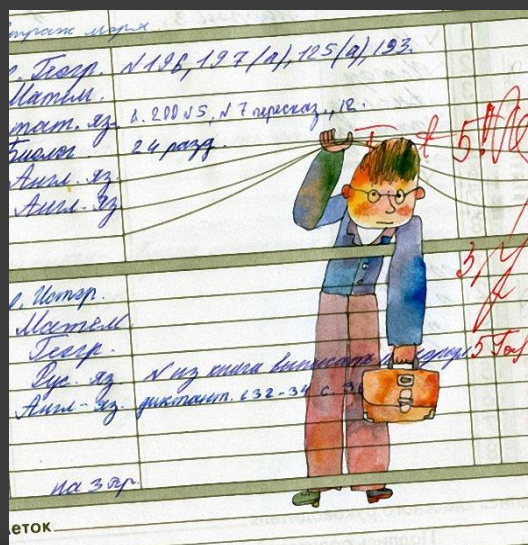 Геогр. N 196, 197 (а), 125 (а), 193.
Матем.
тат. яз. 200 N5, N7 пересказ, 12.
Биолог. 24 разд.
Англ. яз.
Англ. яз
5
3
Истор.
Матем
Геогр.
Рус. яз N из книга выписать
5
Англ-яз. диктант. с 32-34 с
на 3
еток